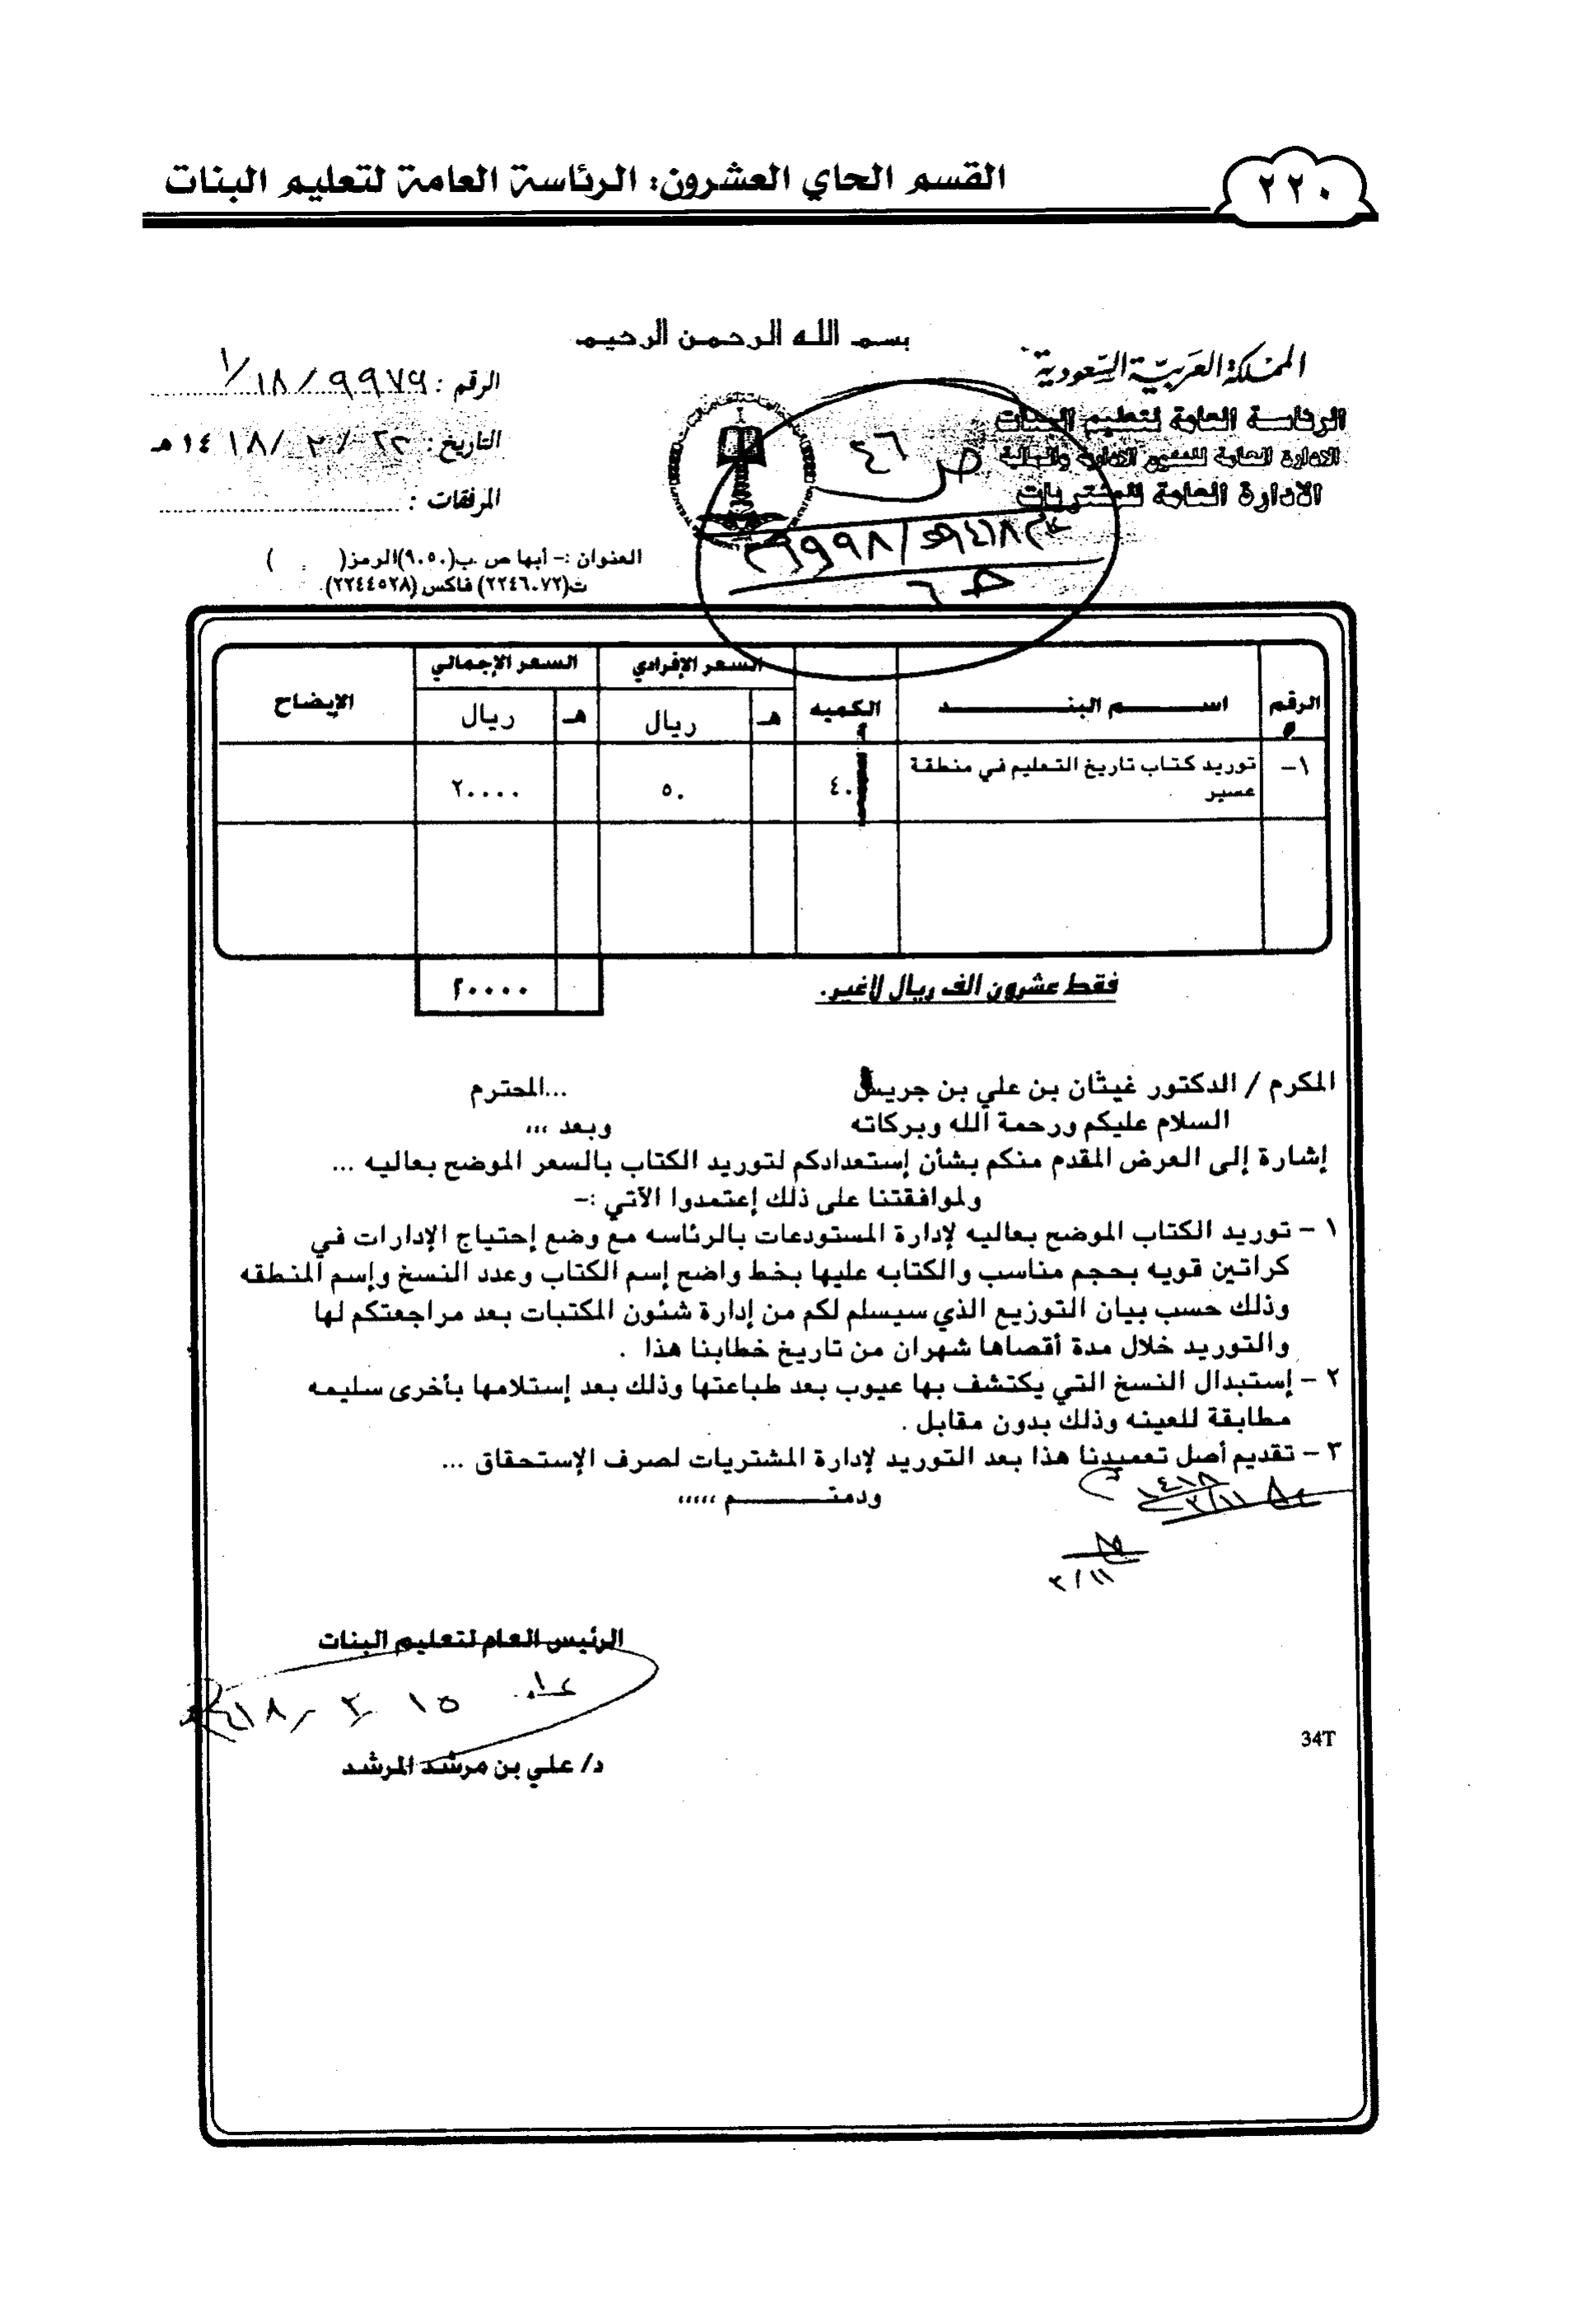 ٢٢٠
القسم الحاي العشرون: الرئاسة العامة لتعليم البنات
بسم الله الرحمن الرحيم
المملكة العربية السعودية
الرئاسة العامة لتعليم البنات
الادارة العامة للشئون الادارية والمالية
الادارة العامة للمشتريات
الرقم : ٩٩٧٩/١٨/١
التاريخ : ٢٢/٢/١٤١٨هـ
المرفقات :
العنوان :- أبها ص.ب(٩٠٥٠)الرمز( )
ت(٢٢٤٦٠٧٢) فاكس (٢٢٤٤٥٢٨).
ص ٤٦
الرقم اسم البند الكميه السعر الإفرادي السعر الإجمالي الإيضاح
هـ ريال هـ ريال
١- توريد كتاب تاريخ التعليم في منطقة ٤٠ ٥٠ ٢٠٠٠٠
عسير
فقط عشرون الف ريال لاغير. ٢٠٠٠٠
المكرم / الدكتور غيثان بن علي بن جريس ...المحترم
السلام عليكم ورحمة الله وبركاته وبعد ,,,
إشارة إلى العرض المقدم منكم بشأن إستعدادكم لتوريد الكتاب بالسعر الموضح بعاليه ...
ولموافقتنا على ذلك إعتمدوا الآتي :-
١ - توريد الكتاب الموضح بعاليه لإدارة المستودعات بالرئاسه مع وضع إحتياج الإدارات في
كراتين قويه بحجم مناسب والكتابه عليها بخط واضح إسم الكتاب وعدد النسخ وإسم المنطقه
وذلك حسب بيان التوزيع الذي سيسلم لكم من إدارة شئون المكتبات بعد مراجعتكم لها
والتوريد خلال مدة أقصاها شهران من تاريخ خطابنا هذا .
٢ - إستبدال النسخ التي يكتشف بها عيوب بعد طباعتها وذلك بعد إستلامها بأخرى سليمه
مطابقة للعينه وذلك بدون مقابل .
٣ - تقديم أصل تعميدنا هذا بعد التوريد لإدارة المشتريات لصرف الإستحقاق ...
ودمتم ,,,,,
٢/١١
الرئيس العام لتعليم البنات
د/ علي بن مرشد المرشد
34T